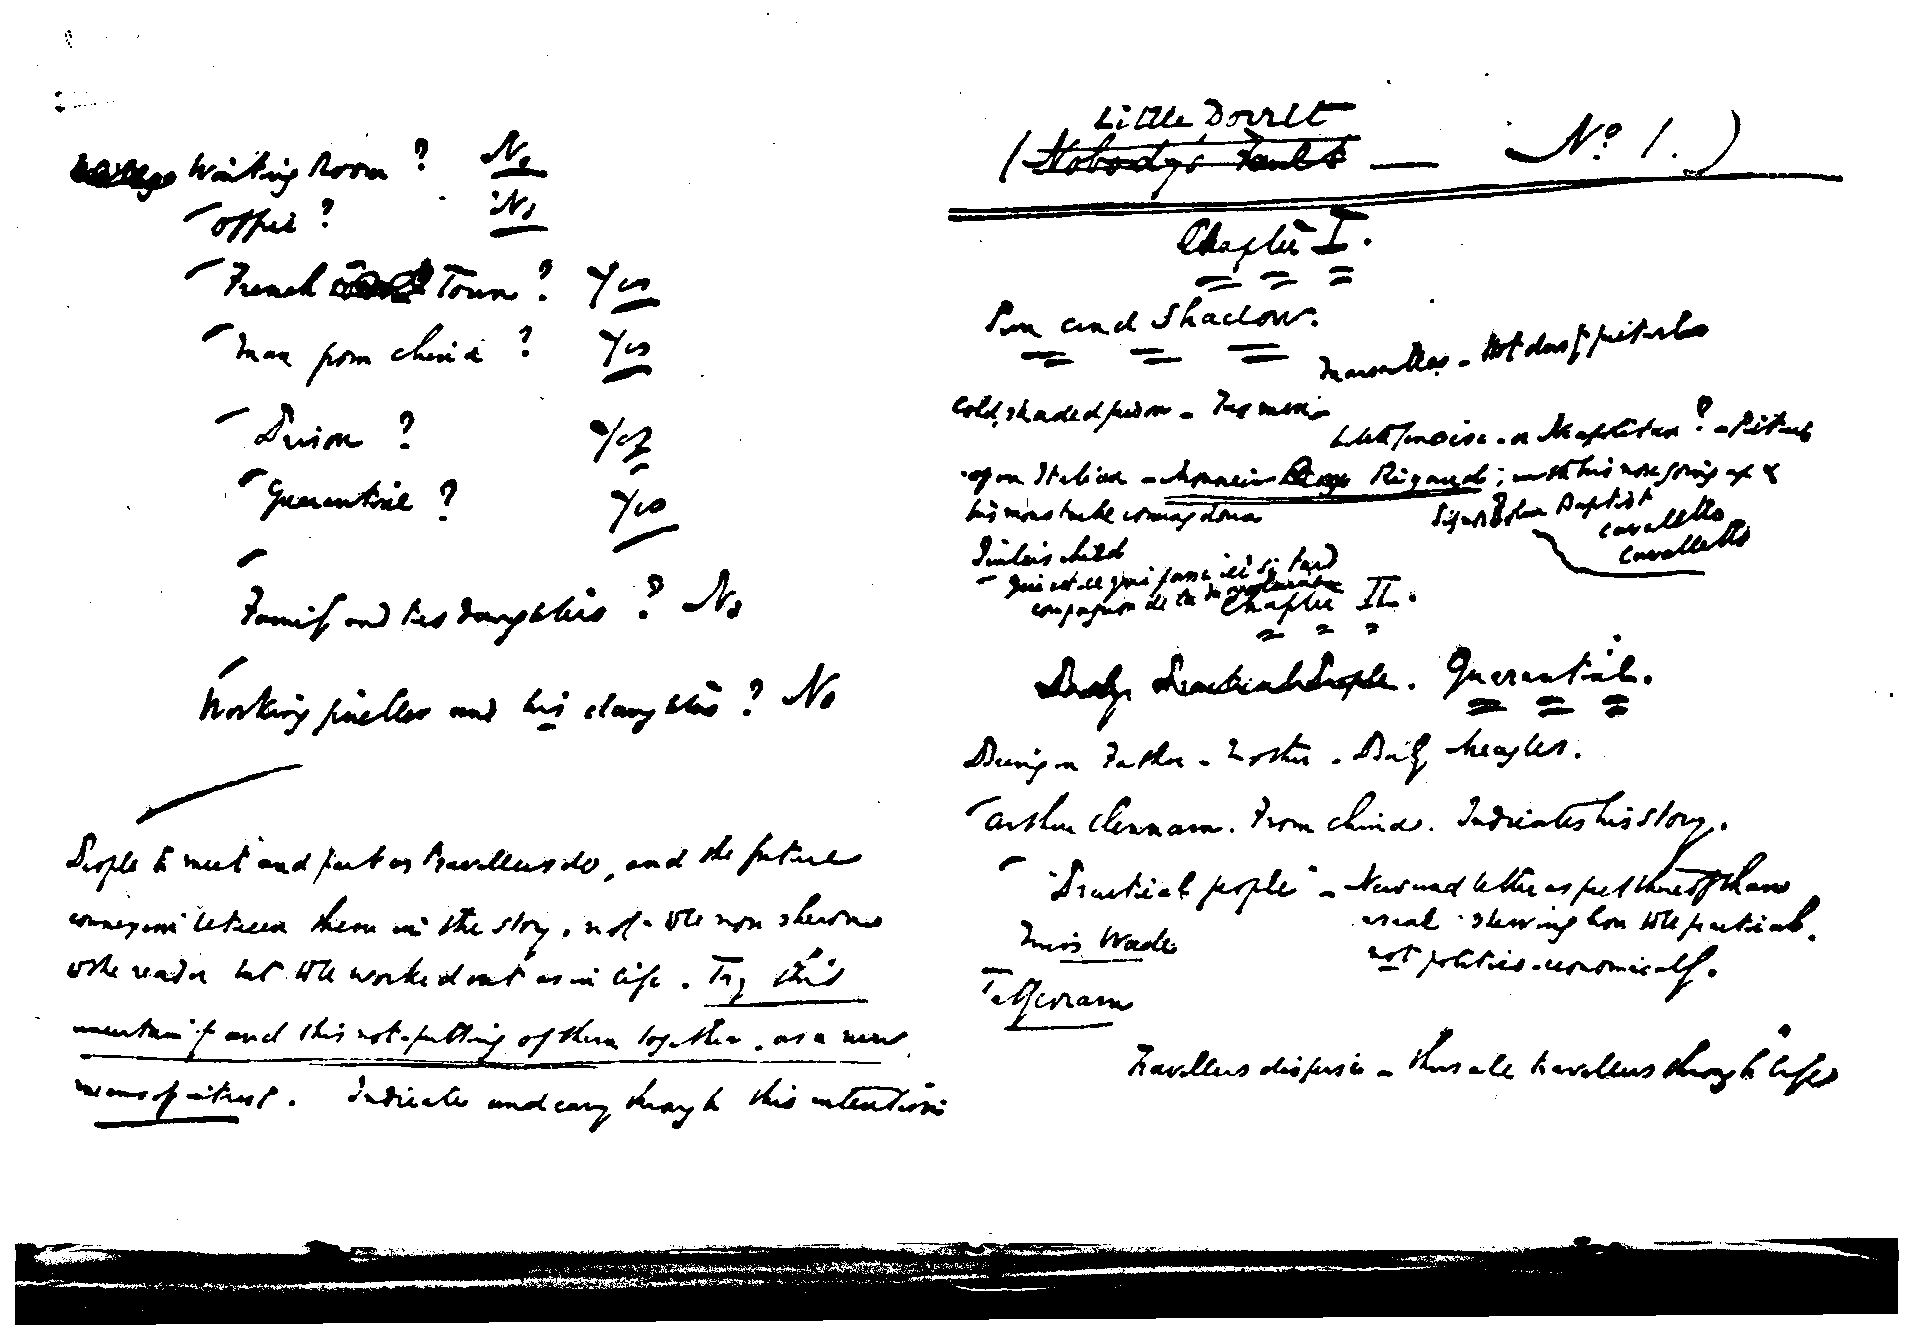 Waiting Room? No
Office? No
French Town? Yes
Man from China? Yes
Prison? Yes
Quarantine? Yes
Family and two daughters? No
Working jueller and his daughter? No
People to meet and part as travellers do, and the future
connexion between them in the story, not to be now shewn
to the reader but to be worked out as in life. Try this
uncertainty and this not-putting of them together, as a new
means of interest. Indicate and carry through this intention
Little Dorrit
(Nobody's Fault — No. 1.)
Chapter I.
Sun and Shadow.
Marseilles - Hot day & pictures
Cold, shaded prison - Two men
Little Genoese - or Neapolitan? - Picture
of an Italian - Monsieur Rigaud; with his nose going up &
his moustache coming down
Signor John Baptist
Cavalletto
Cavalletto
Jailer's child
Qui est ce qui passe ici si tard
compagnon de la Marjolaine
Chapter II.
Practical People. Quarantine.
Bring in Father - Mother - Baby Meagles.
Arthur Clennam. From China. Indicates his story.
"Practical people" - New and better aspect thereof than
usual - shewing how to be practical.
not politico-economically.
Miss Wade
Tattycoram
Travellers disperse - thus all travellers through life